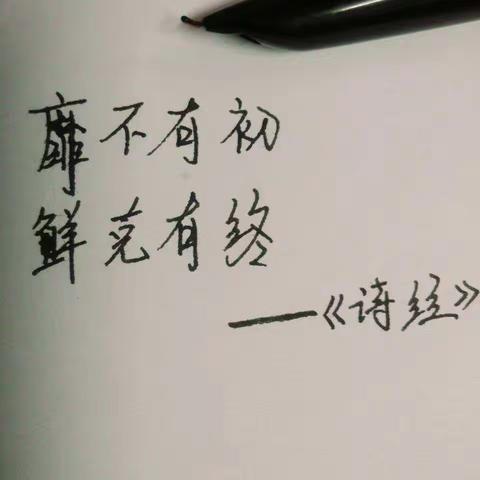 靡不有初
鲜克有终
——《诗经》